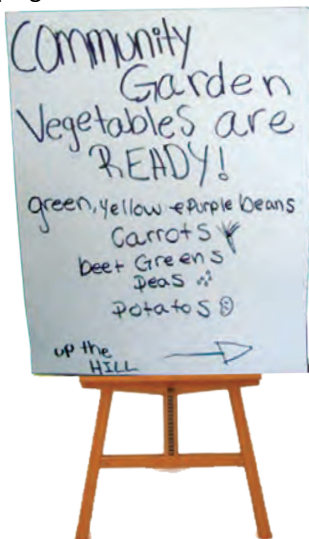 Community
Garden
Vegetables are
READY!
green, yellow + Purple beans
Carrots
beet Greens
Peas
Potatos
up the
HILL